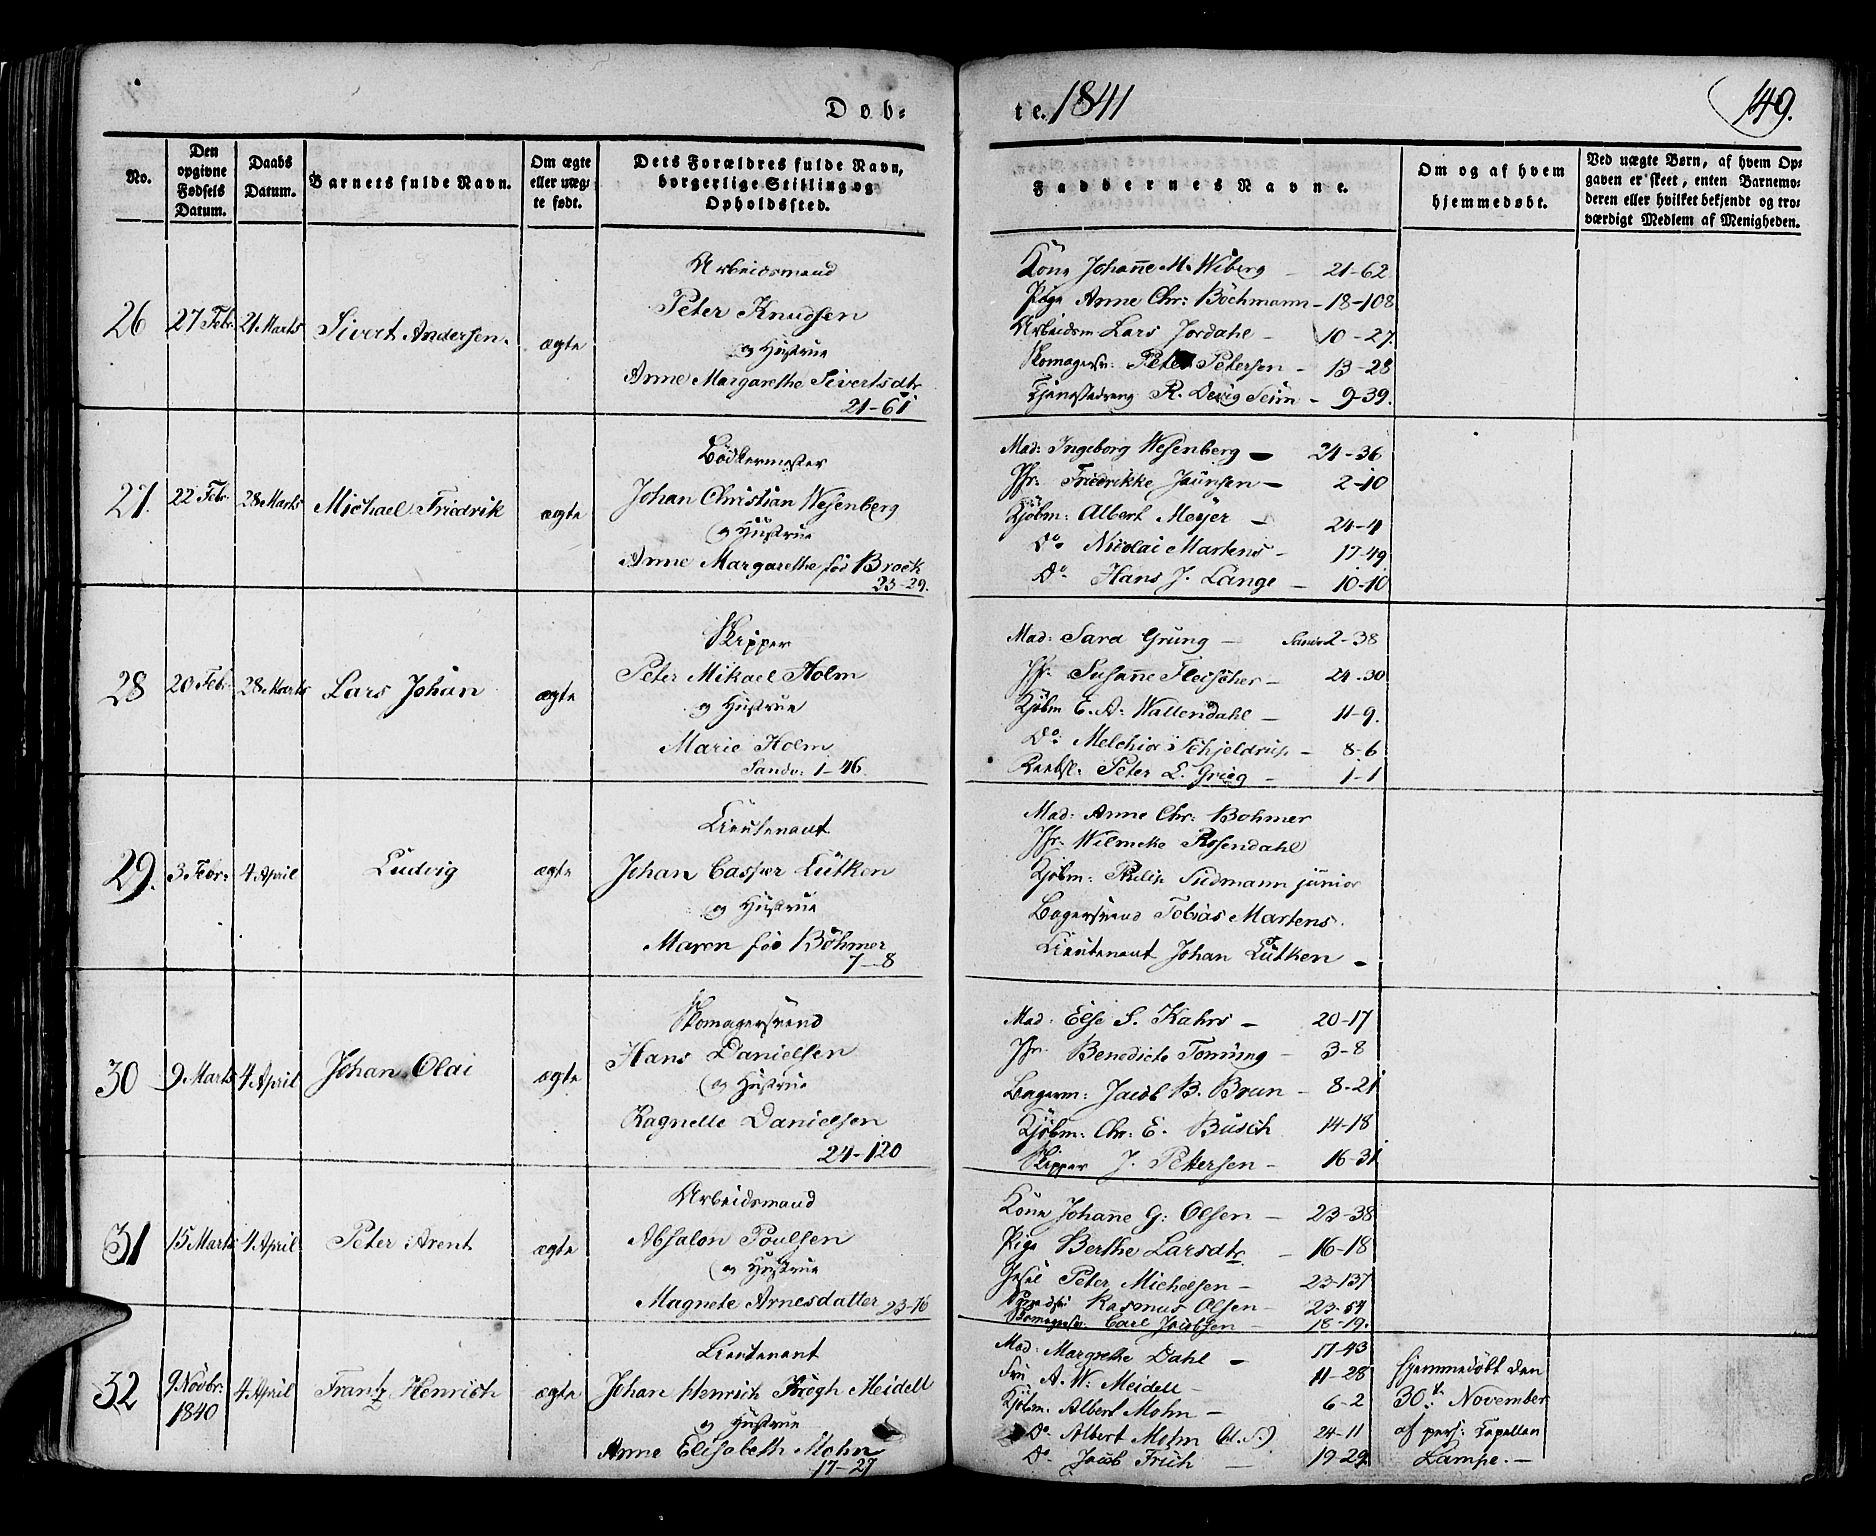 Døb-
te. 1841
149.
No.
Den opgivne Fødsels Datum.
Daabs Datum.
Barnets fulde Navn.
Om ægte eller uægte født.
Dets Forældres fulde Navn, borgerlige Stilling og Opholdssted.
Faddernes Navne.
Om og af hvem hjemmedøbt.
Ved uægte Børn, af hvem Opgaven er skeet, enten Barnemoderen eller hvilket bekjendt og troværdigt Medlem af Menigheden.
26 27 Febr. 21 Marts Sivert Andersen. ægte
Arbeidsmand
Peter Knudsen
og Hustrue
Anne Margarethe Sivertsdtr
21-61
Kone Johanne M. Wiberg - 21-62
Pige Anne Chr: Böchmann - 18-108
Arbeidsm Lars Jordahl - 10-27
Skomagersv: Peter Petersen - 13-28
Tjenestedreng R. Seim - 9-39.
27. 22 Febr. 28 Marts Michael Fredrik ægte
Bödkermester
Johan Christian Wesenberg
og Hustrue
Anne Margarethe fød Brock
23-29.
Mad: Ingeborg Wesenberg - 24-36
Jfr: Fredrikke Jaunsen - 2-10
Kjöbm: Albert Meyer - 24-4
Do Nicolai Martens - 17-49
Do. Hans J. Lange - 10-10
28 20 Febr. 28 Marts Lars Johan ægte
Skipper
Peter Mikael Holm
og Hustrue
Marie Holm
Sandv: 1-46.
Mad: Sara Grung - Sandv 2-38
Jfr. Susanne Fleischer - 24-30
Kjöbm E. A: Wallendahl - 11-9.
Do: Melchior Schjeldrup - 8-6
Peter L. Grieg - 1-1
29. 3 Febr: 4 April Ludvig ægte
Lieutenant
Johan Casper Lütken
og Hustrue
Maren fød Böhmer
7-8
Mad: Anne Chr: Bohmer
Jfr: Wilmeke Rosendahl
Kjöbm: Philip Sudmann junior
Bagersvend Tobias Martens.
Lieutenant Johan Lütken -
30 9 Marts 4 April Johan Olai ægte
Skomagersvend
Hans Danielsen
og Hustrue
Ragnelle Danielsen
24-120
Mad: Else S. Kahrs - 20-17
Jfr. Benedicte Tonning - 3-8
Bagerm: Jacob B. Brun - 8-21
Kjöbm: Chr: E. Busch 14-18
Skipper J. Pettersen - 16-31
31 15 Marts 4 April Peter Arent ægte
Arbeidsmand
Absalon Poulsen
og Hustrue
Magnete Arnesdatter 23-16
Kone Johanne G: Olsen - 23-38
Pige Berthe Larsdtr - 16-18
Peter Michelsen - 23-137
Rasmus Olsen - 23-54
Skomagersv: Carl Jacobsen - 18-19.
32 9 Novbr: 1840 4 April Frantz Henrich ægte
Lieutenant
Johan Henrich Krogh Meidell
og Hustrue
Anne Elisabeth Mohn
17-27
Mad: Margrethe Dahl - 17-43
Fru A. W: Meidell - 11-28
Kjöbm. Albert Mohn - 6-2
Do. Albert Mohn 24-11
Do. Jacob Frich - 19-29
Hjemmedöbt den
30t November
af pers: Capellan
Lampe. -